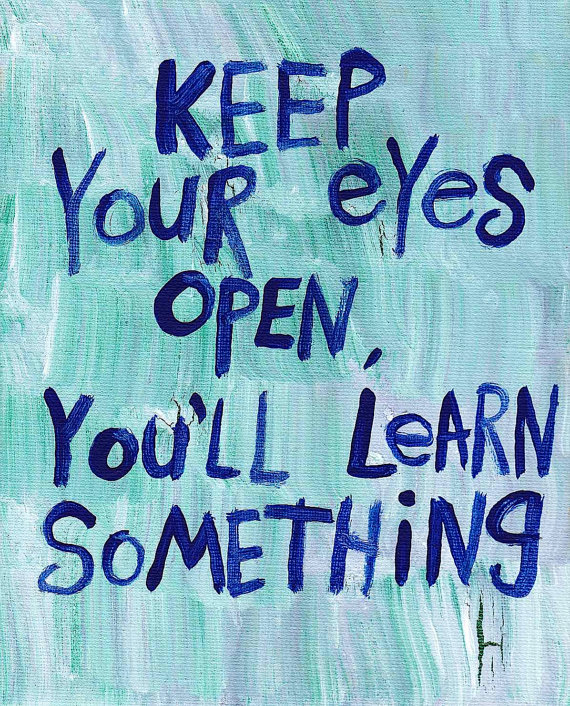 KEEP
YOUR eYes
OPEN,
YOU'LL LeARN
SOMETHiNg